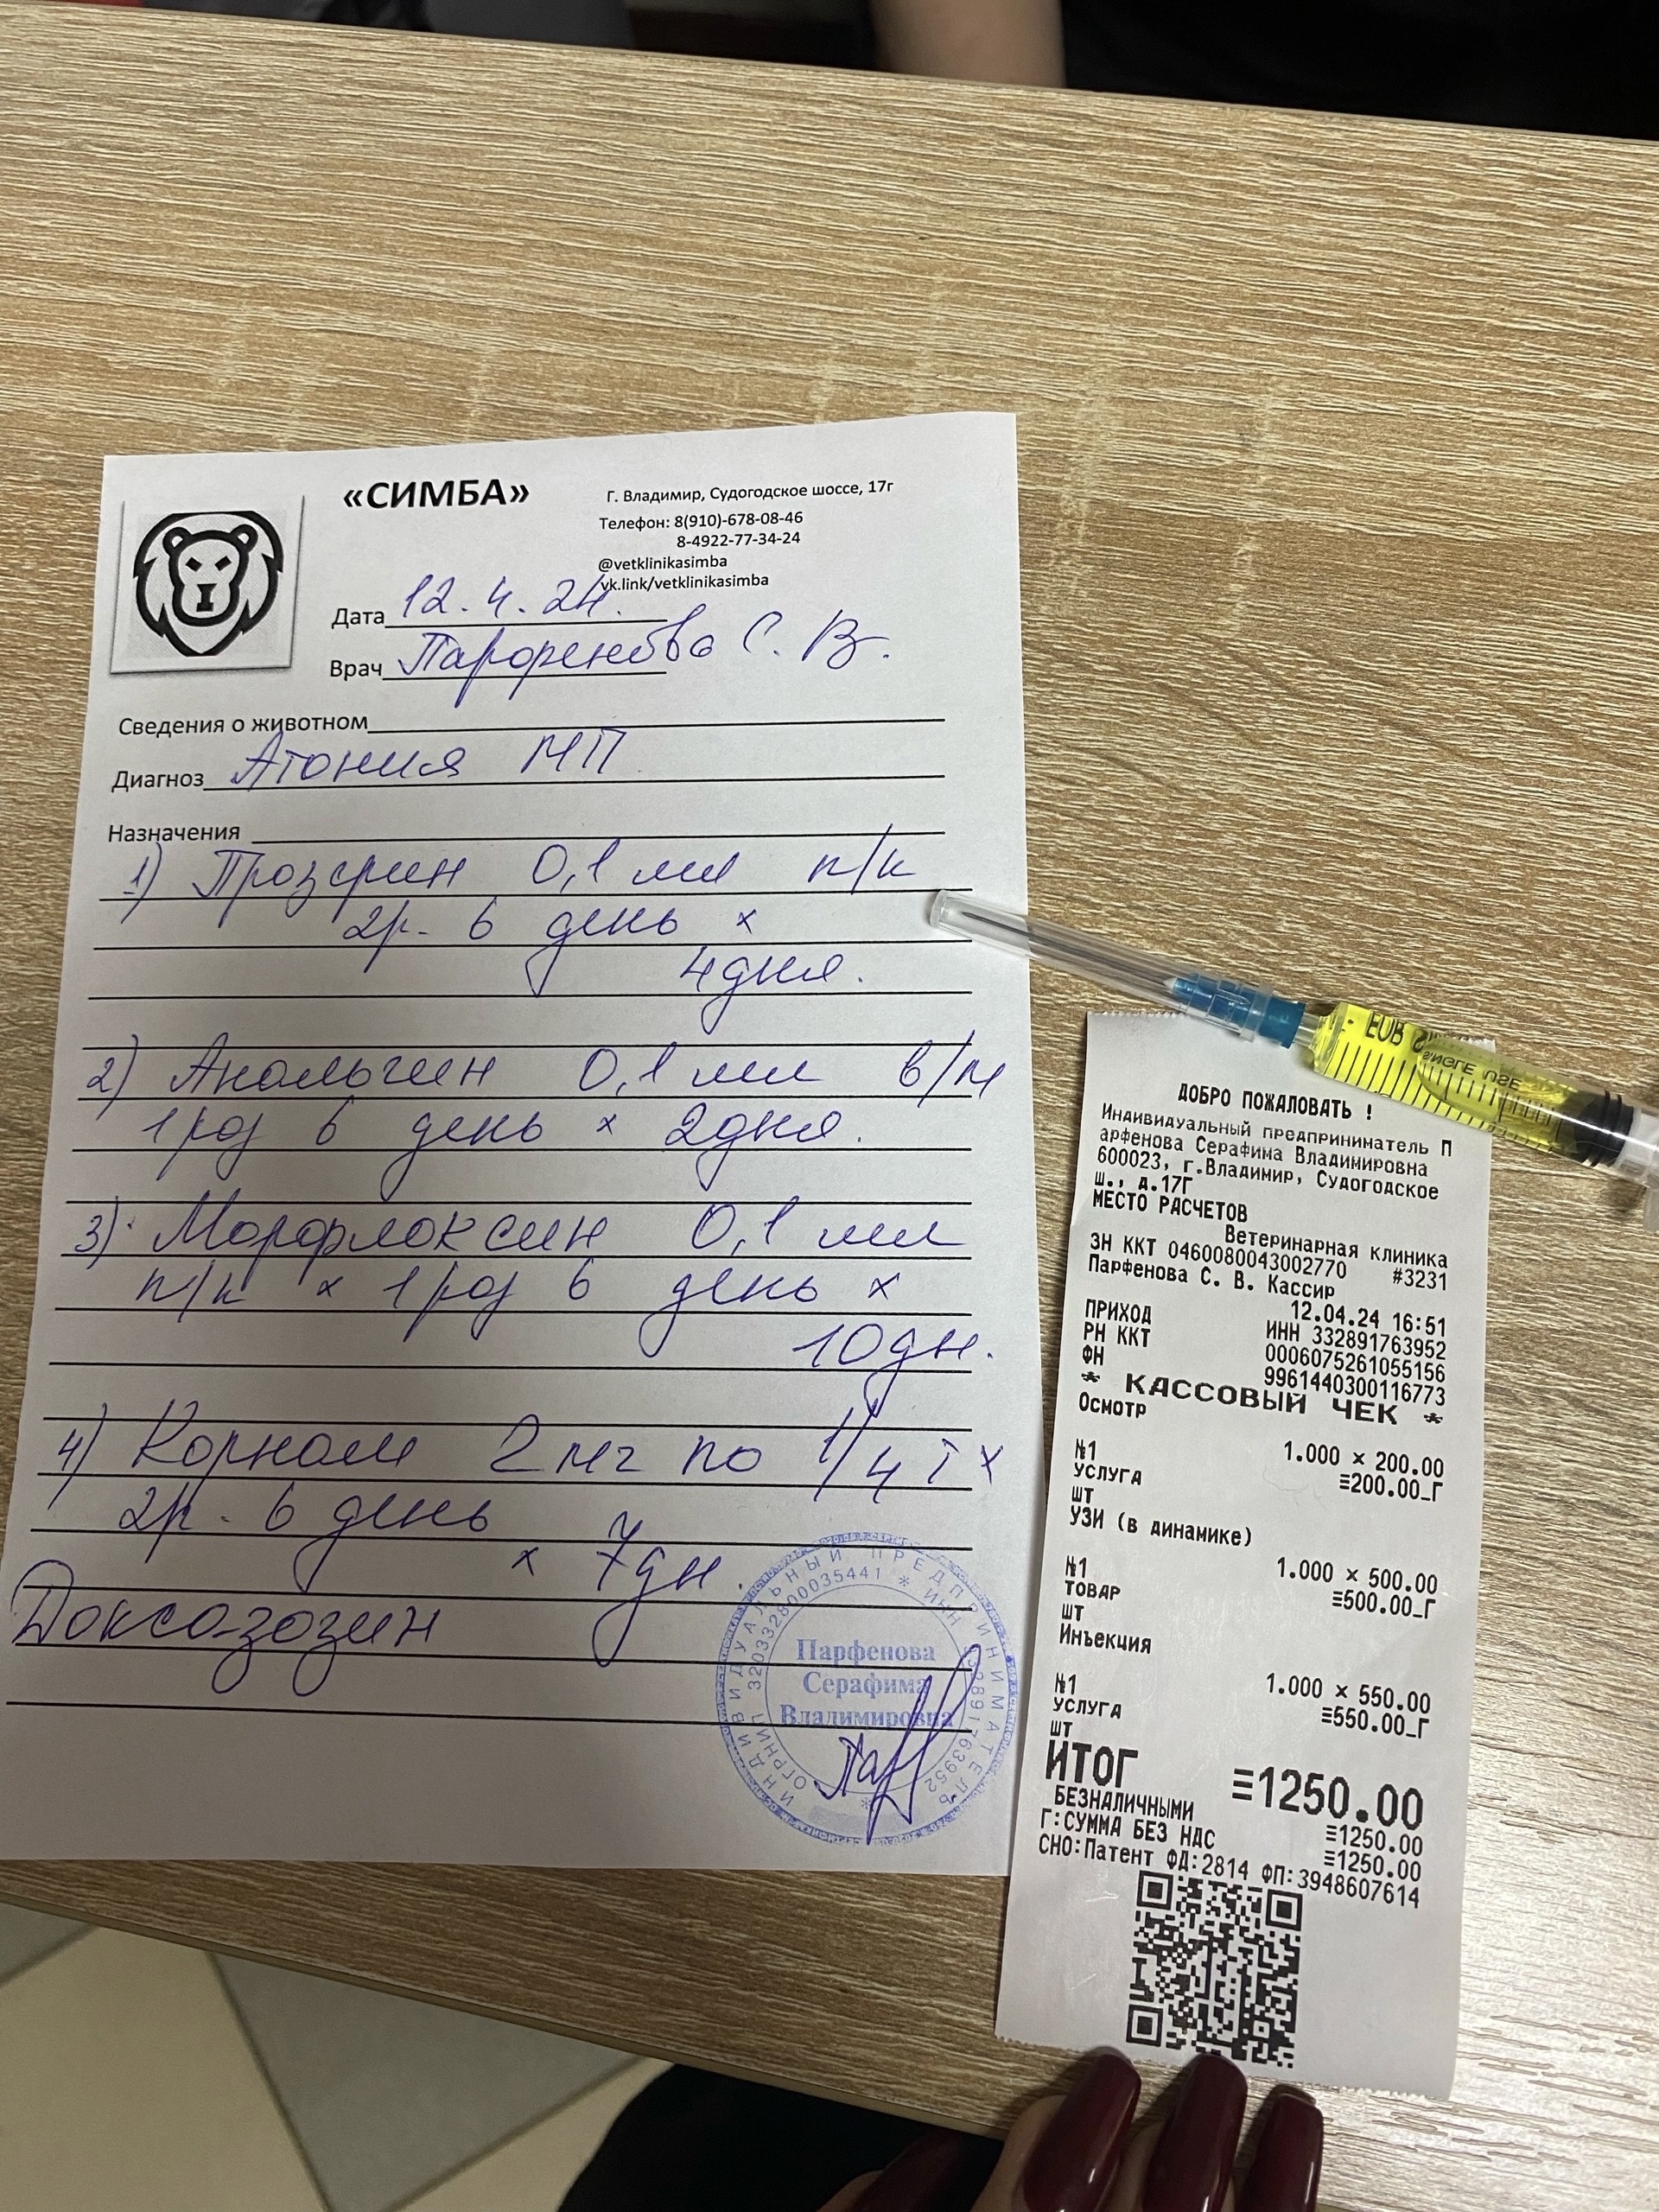 «СИМБА»
Г. Владимир, Судогодское шоссе, 17г
Телефон: 8(910)-678-08-46
8-4922-77-34-24
@vetklinikasimba
vk.link/vetklinikasimba
Дата 12.4.24.
Врач Парфенова С. В.
Сведения о животном
Диагноз Атония МП
Назначения
1) Прозерин 0,1 мл п/к
2р. в день х
4 дня.
2) Анальгин 0,1 мл в/м
1 раз в день х 2 дня.
3) Марфлоксин 0,1 мл
п/к х 1 раз в день х
10 дн.
4) Корнам 2 мг по 1/4 т х
2р. в день
х 7 дн.
Доксазозин
ИНДИВИДУАЛЬНЫЙ ПРЕДПРИНИМАТЕЛЬ
ОГРНИП 320332800035441 * ИНН 332891763952 *
Парфенова
Серафима
Владимировна
FOR SINGLE USE
ДОБРО ПОЖАЛОВАТЬ !
Индивидуальный предприниматель П
арфенова Серафима Владимировна
600023, г.Владимир, Судогодское
ш., д.17Г
МЕСТО РАСЧЕТОВ
Ветеринарная клиника
ЗН ККТ 0460080043002770 #3231
Парфенова С. В. Кассир
12.04.24 16:51
ПРИХОД ИНН 332891763952
РН ККТ 0006075261055156
ФН 9961440300116773
* КАССОВЫЙ ЧЕК *
Осмотр
№1 1.000 × 200.00
УСЛУГА ≡200.00_Г
шт
УЗИ (в динамике)
№1 1.000 × 500.00
ТОВАР ≡500.00_Г
шт
Инъекция
№1 1.000 × 550.00
УСЛУГА ≡550.00_Г
шт
ИТОГ ≡1250.00
БЕЗНАЛИЧНЫМИ ≡1250.00
Г:СУММА БЕЗ НДС ≡1250.00
СНО:Патент ФД:2814 ФП:3948607614